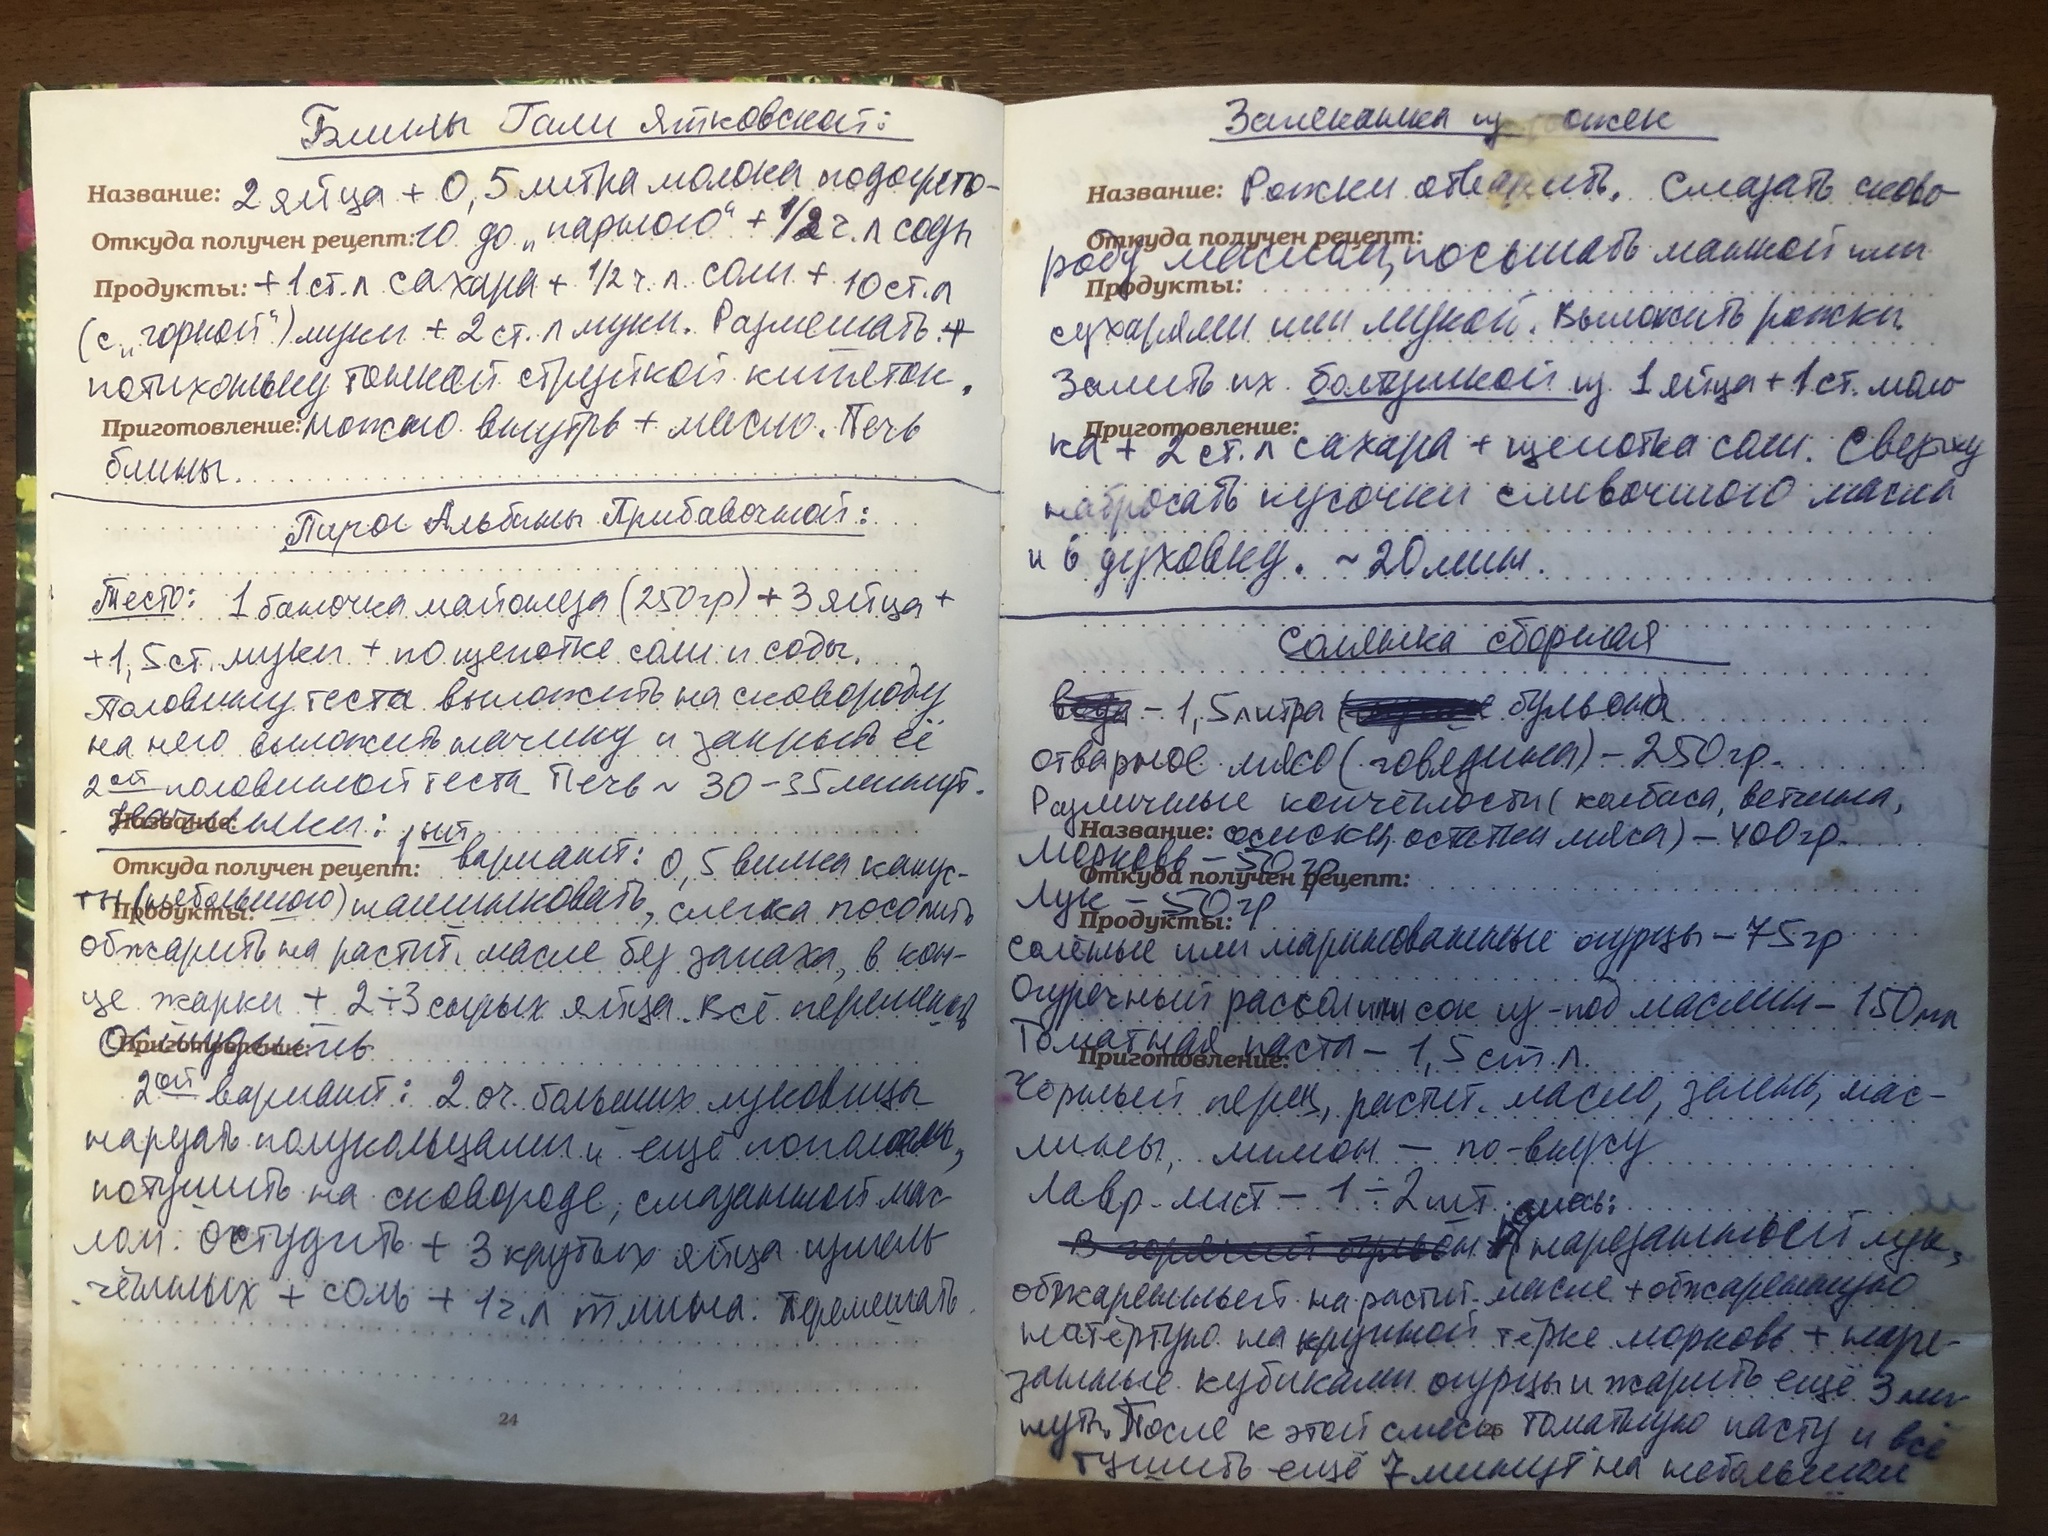 Блины Гали Ятковской:
Название: 2 яйца + 0,5 литра молока подогрето-
Откуда получен рецепт: го до „парного“ + 1/2 ч.л соды
Продукты: + 1 ст.л сахара + 1/2 ч.л. соли + 10 ст.л
(с „горкой“) муки + 2 ст.л муки. Размешать +
потихоньку тонкой струйкой кипяток.
Приготовление: можно внутрь + масло. Печь
блины.
Пирог Альбины Прибавочной:
Тесто: 1 баночка майонеза (250гр) + 3 яйца +
+ 1,5 ст. муки + по щепотке соли и соды.
Половину теста выложить на сковороду
на него выложить начинку и закрыть её
2ой половинкой теста Печь ~ 30-35 минут.
Название:
Начинки: 1ый
Откуда получен рецепт: вариант: 0,5 вилка капус-
Продукты:
ты (небольшого) нашинковать, слегка посолить
обжарить на растит. масле без запаха, в кон-
це жарки + 2÷3 сырых яйца. Всё перемешать
Приготовление:
Остудить
2ой вариант: 2 оч. больших луковицы
нарезать полукольцами и ещё пополам,
потушить на сковороде, смазанной мас-
лом. Остудить + 3 крутых яйца измель
чённых + соль + 1 ч.л тмина. Перемешать.
24
Запеканка из рожек
Название: Рожки отварить. Смазать сково-
Откуда получен рецепт:
роду маслом, посыпать манкой или
Продукты:
сухарями или мукой. Выложить рожки
Залить их болтушкой из 1 яйца + 1 ст. моло
Приготовление:
ка + 2 ст.л сахара + щепотка соли. Сверху
набросать кусочки сливочного масла
и в духовку. ~ 20 мин.
Солянка сборная
вода - 1,5 литра бульона
отварное мясо (говядина) - 250 гр.
Различные копчёности (колбаса, ветчина,
Название: сосиски, остатки мяса) - 400 гр.
Морковь - 50 гр
Откуда получен рецепт:
Лук - 50 гр
Продукты:
Солёные или маринованные огурцы - 75 гр
Огуречный рассол или сок из-под маслин - 150 мл
Томатная паста - 1,5 ст.л.
Приготовление:
Чорный перец, растит. масло, зелень, мас-
лины, лимон - по-вкусу
Лавр. лист - 1÷2 шт.
В горячий бульон нарезанный лук,
обжаренный на растит. масле + обжаренную
натёртую на крупной тёрке морковь + наре-
занные кубиками огурцы и жарить ещё 3 ми-
нуты. После к этой смеси томатную пасту и всё
тушить ещё 7 минут на небольшом